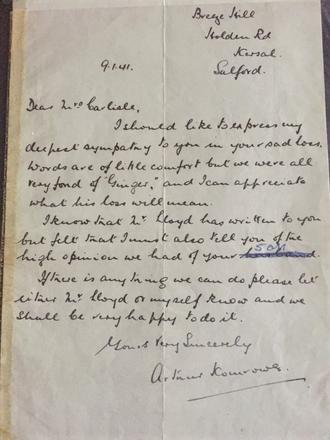 Breeze Hill
Holden Rd
Kersal
Salford.
9.1.41.
Dear Mrs Carlisle,
I should like to express my
deepest sympathy to you in your sad loss.
Words are of little comfort but we were all
very fond of "Ginger," and I can appreciate
what his loss will mean.
I know that Mr Lloyd has written to you
but felt that I must also tell you of the
high opinion we had of your husband son.
If there is anything we can do please let
either Mr Lloyd or myself know and we
shall be very happy to do it.
Yours Very Sincerely
Arthur